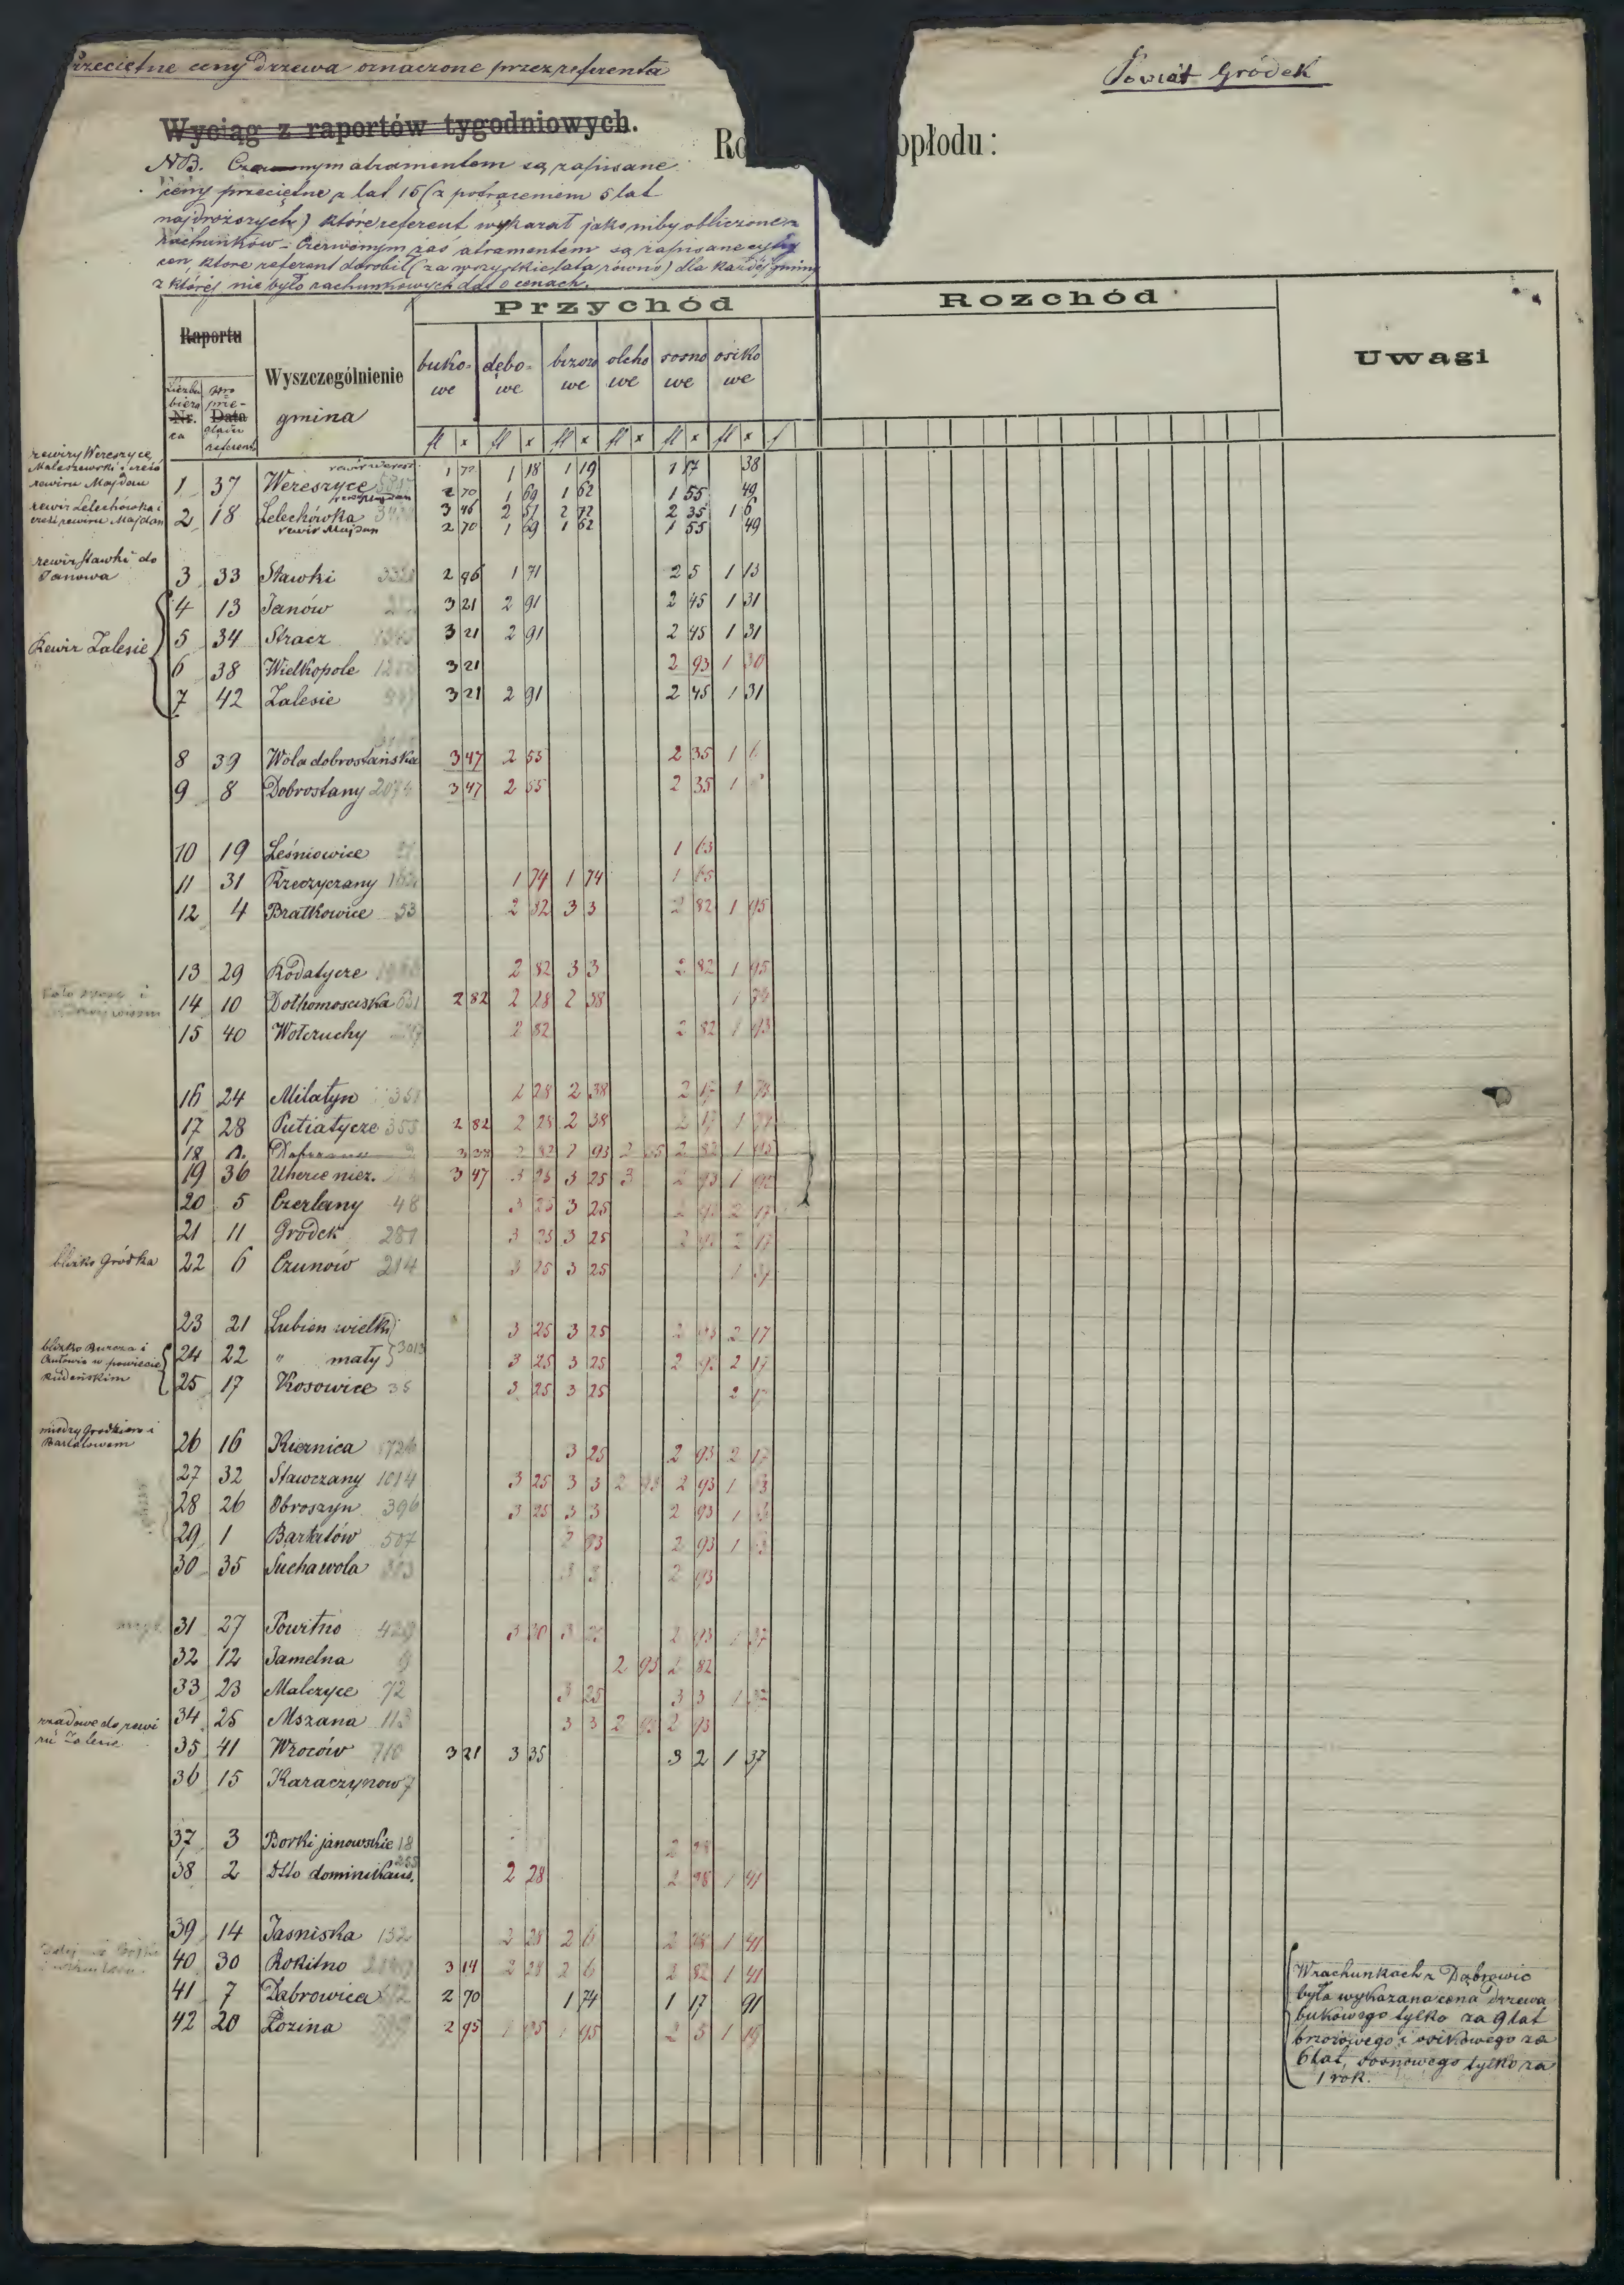 Przeciętne ceny drzewa oznaczone przez referenta
Powiat Gródek
Wyciąg z raportów tygodniowych.
Ro opłodu:
NB. Czarnym atramentem są zapisane
ceny przeciętne z lat 15 (z potrąceniem 5 lat
najdroższych) które referent wykazał jako niby obliczone z
rachunków – Czerwonym zaś atramentem są zapisane cyfry
cen, które referent dorobił (za wszystkie lata równo) dla każdéj gminy
z któréj nie było rachunkowych dat o cenach.
Przychód Rozchód Uwagi
Raportu Wyszczególnienie
Nr. Data gmina
bukowe dębowe brzozowe olchowe sosnowe osikowe
fl x fl x fl x fl x fl x fl x
rewiry Wereszyce,
Maleszewski i część
rewiru Majdan
1 37 Wereszyce 1 18 1 19 1 17 38
2 70 1 69 1 62 1 55 49
rewir Lelechówka i
część rewiru Majdan
2 18 Lelechówka 3 46 2 57 2 72 2 35 1 6
rewir Majdan 2 70 1 69 1 62 1 55 49
rewir Stawki do
Janowa
3 33 Stawki 2 96 1 71 2 5 1 13
4 13 Janów 3 21 2 91 2 45 1 31
Rewir Zalesie
5 34 Stracz 3 21 2 91 2 45 1 31
6 38 Wielkopole 3 21 2 93 1 30
7 42 Zalesie 3 21 2 91 2 45 1 31
8 39 Wola dobrostańska 3 47 2 55 2 35 1 6
9 8 Dobrostany 3 47 2 55 2 35 1
10 19 Leśniowice 1 63
11 31 Rzeczyczany 1 74 1 74 1 65
12 4 Bratkowice 53 2 82 3 3 2 82 1 95
13 29 Rodatycze 2 82 3 3 2 82 1 95
14 10 Dołhomosciska 2 82 2 28 2 38 1 74
15 40 Wołczuchy 2 82 2 82 1 93
16 24 Milatyn 2 28 2 38 2 17 1 74
17 28 Putiatycze 355 2 82 2 28 2 38 2 17 1 74
18
19 36 Uherce niez. 3 47 3 25 3 25 3 2 93 1 92
20 5 Czerlany 48 3 25 3 25 2 93 2 17
21 11 Gródek 287 3 25 3 25 2 93 2 17
blizko Gródka
22 6 Czunów 214 3 25 3 25 1 37
23 21 Lubien wielki 3 25 3 25 2 93 2 17
blizko Burcza i
w powiecie
Rudeńskim
24 22 " mały 3013 3 25 3 25 2 93 2 17
25 17 Kosowice 35 3 25 3 25 2 17
między Gródkiem i
Bartatowem
26 16 Kiernica 3 25 2 93 2 17
27 32 Stawczany 1014 3 25 3 3 2 93 2 93 1 3
28 26 Obroszyn 396 3 25 3 3 2 93 1
29 1 Bartatów 507 2 93 2 93 1
30 35 Suchawola 3 3 2 93
31 27 Powitno 3 30 3 25 2 93 1 37
32 12 Jamelna 9 2 93 2 82
33 23 Malczyce 72 3 25 3 3 1 37
34 25 Mszana 113 3 3 2 93 2 93
35 41 Wroców 710 3 21 3 35 3 2 1 37
36 15 Karaczynow 7
37 3 Borki janowskie 18 2 28
38 2 Dtto dominikans. 2 28 2 28 1 41
39 14 Jasniska 132 2 28 2 6 2 28 1 41
40 30 Rokitno 3 14 2 28 2 6 2 82 1 41
41 7 Dąbrowica 2 70 1 74 1 17 91
42 20 Łozina 2 95 1 95 1 95 2 3 1 19
W rachunkach z Dąbrowic
była wykazana cena drzewa
bukowego tylko za 9 lat
brzozowego i osikowego za
6 lat, sosnowego tylko za
1 rok.